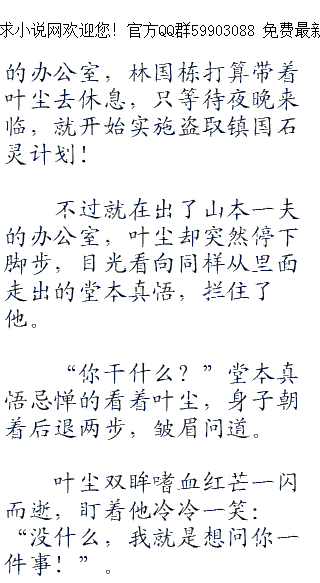 求小说网欢迎您！官方QQ群59903088 免费最新
的办公室，林国栋打算带着
叶尘去休息，只等待夜晚来
临，就开始实施盗取镇国石
灵计划！
不过就在出了山本一夫
的办公室，叶尘却突然停下
脚步，目光看向同样从里面
走出的堂本真悟，拦住了
他。
“你干什么？”堂本真
悟忌惮的看着叶尘，身子朝
着后退两步，皱眉问道。
叶尘双眸嗜血红芒一闪
而逝，盯着他冷冷一笑：
“没什么，我就是想问你一
件事！”。